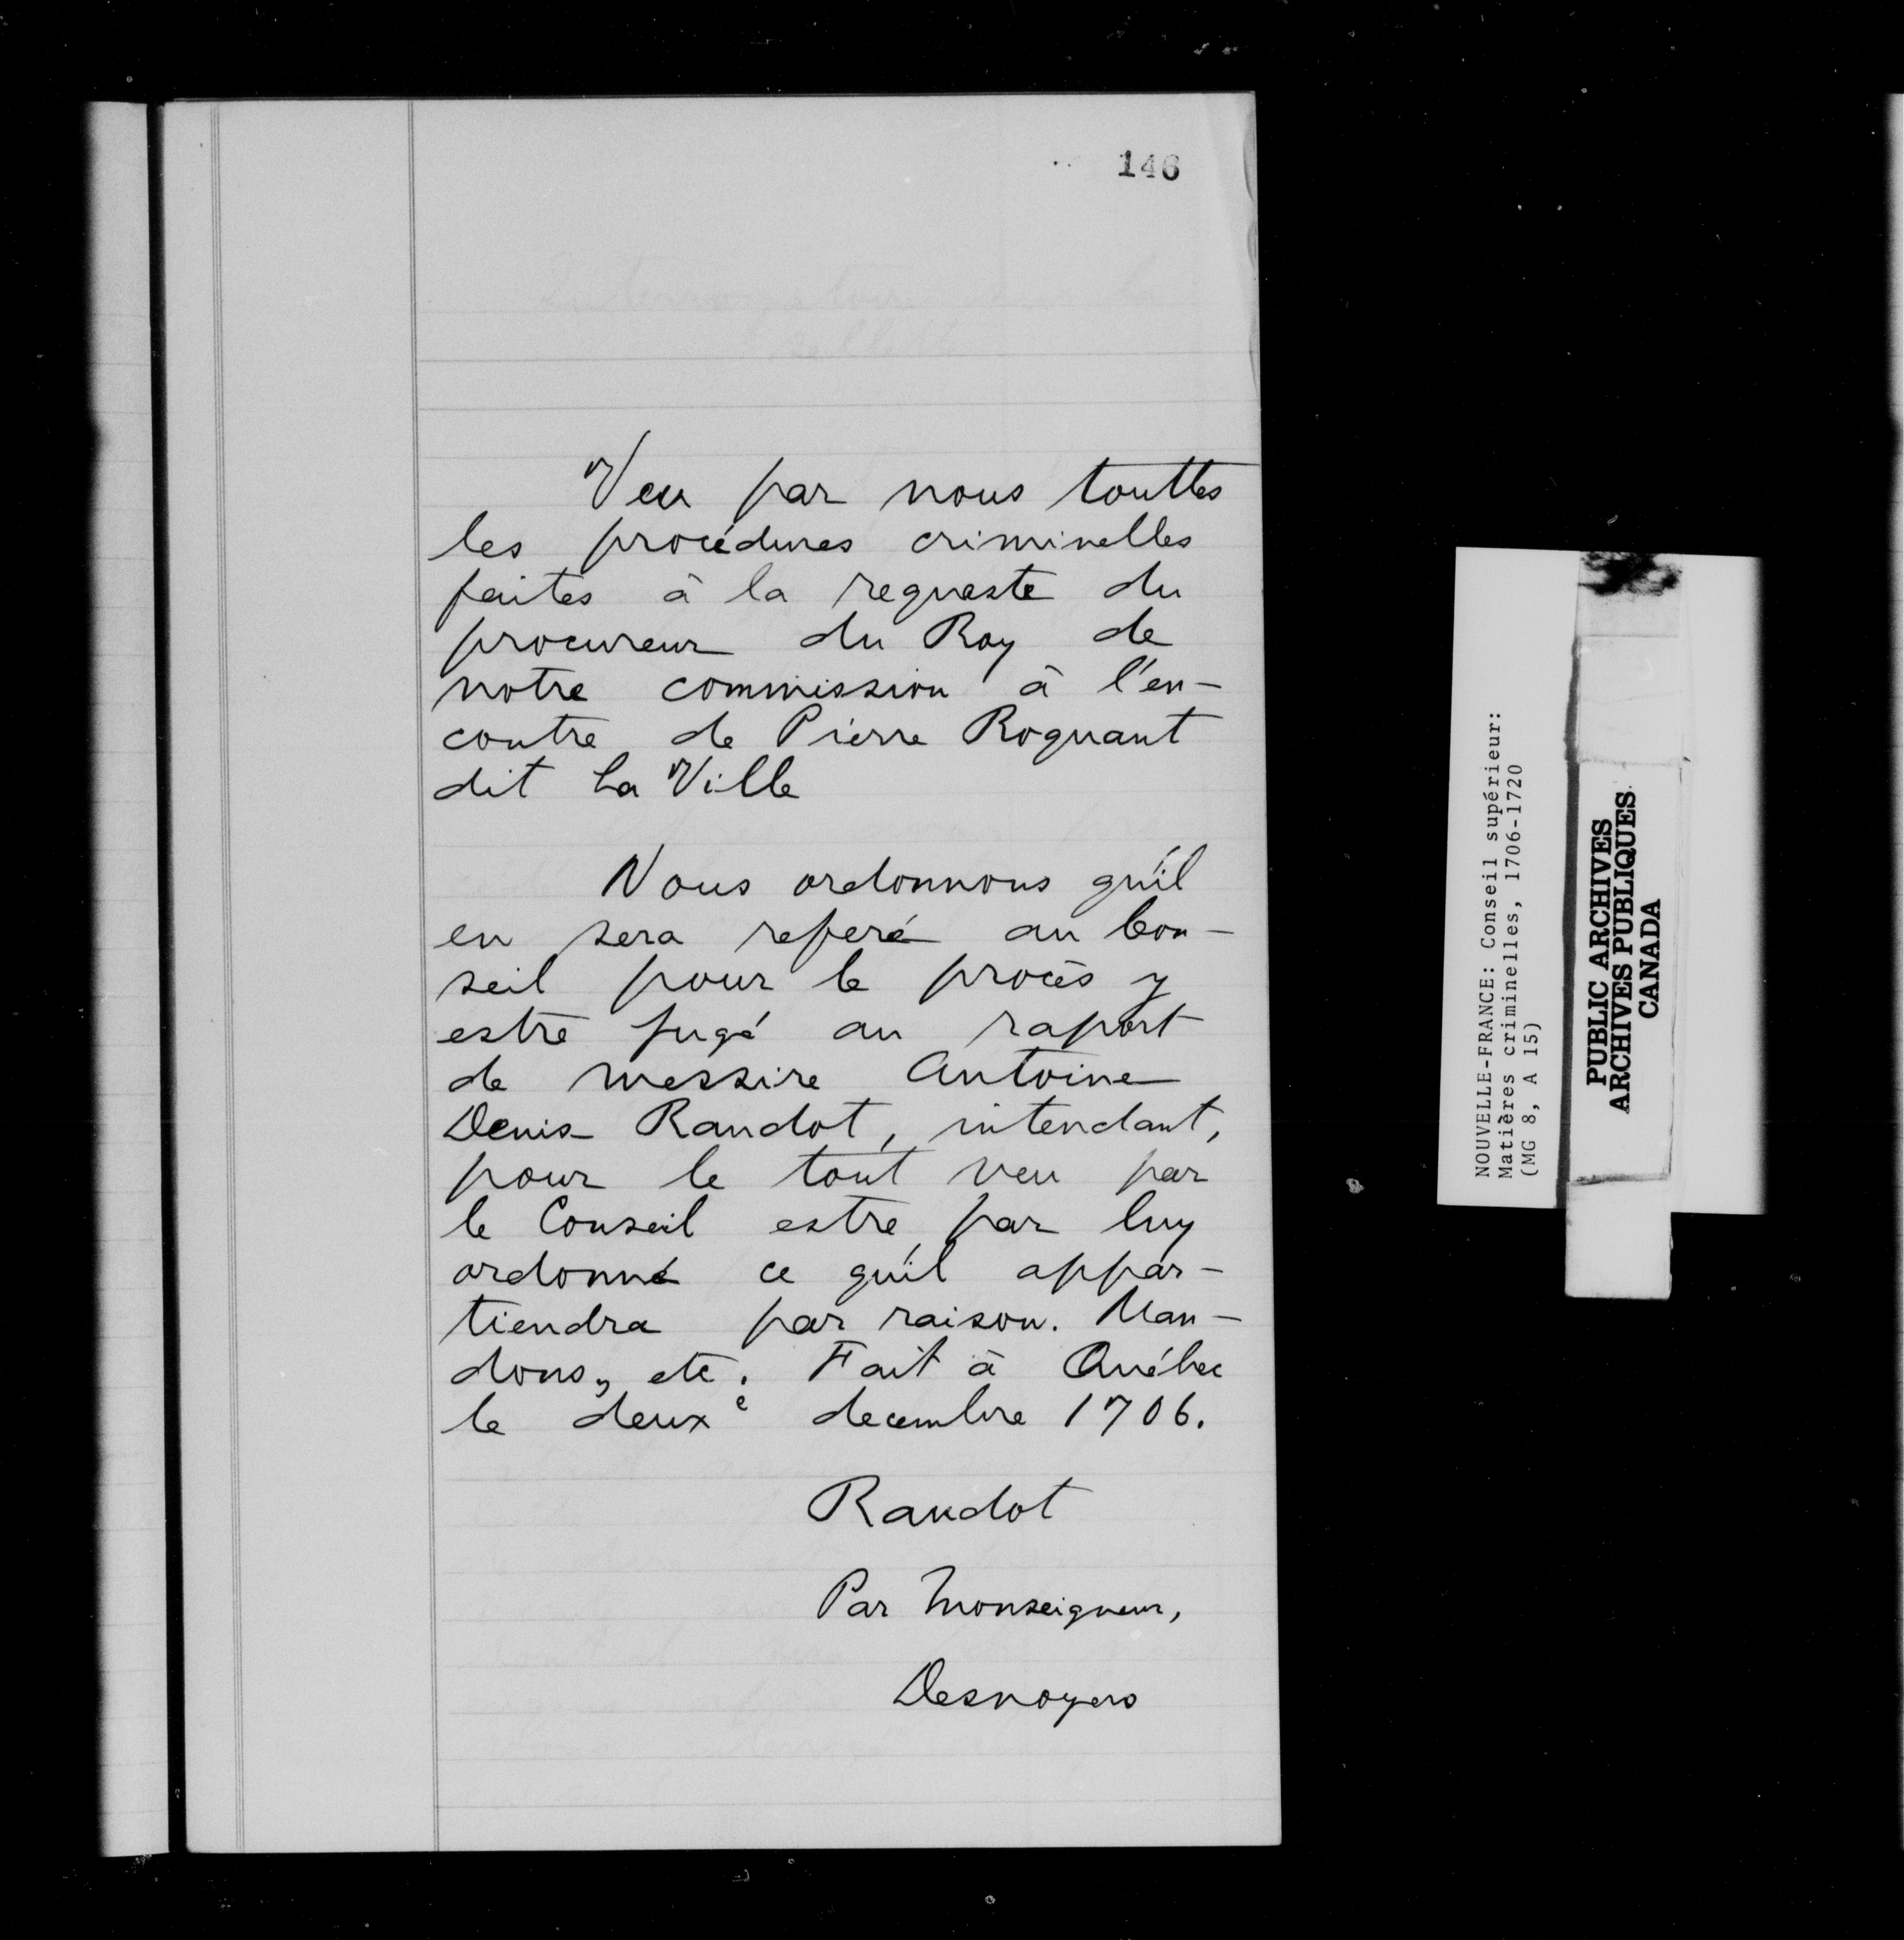 146
Veu par nous touttes
les procédures criminelles
faites à la requeste du
procureur du Roy de
notre commission à l'en-
contre de Pierre Roquant
dit La Ville
Nous ordonnons qu'il
en sera referé au Con-
seil pour le procès y
estre jugé au raport
de messire Antoine
Denis Raudot, intendant,
pour le tout veu par
le Conseil estre par luy
ordonné ce qu'il appar-
tiendra par raison. Man-
dons, etc. Fait à Québec
le deuxe decembre 1706.
Raudot
Par Monseigneur,
Desnoyers
NOUVELLE-FRANCE: Conseil supérieur:
Matières criminelles, 1706-1720
(MG 8, A 15)
PUBLIC ARCHIVES
ARCHIVES PUBLIQUES
CANADA